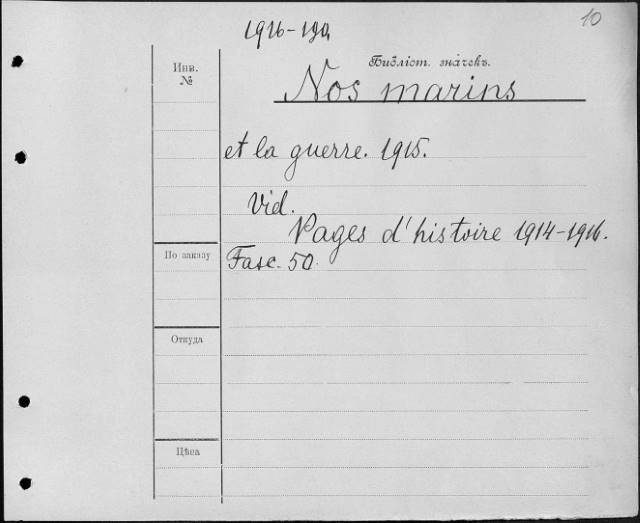 10
1916-190
Инв.
№
Библіот. значекъ.
Nos marins
et la guerre. 1915.
Vid.
Pages d'histoire 1914-1916.
По заказу
Fasc. 50.
Откуда
Цѣна